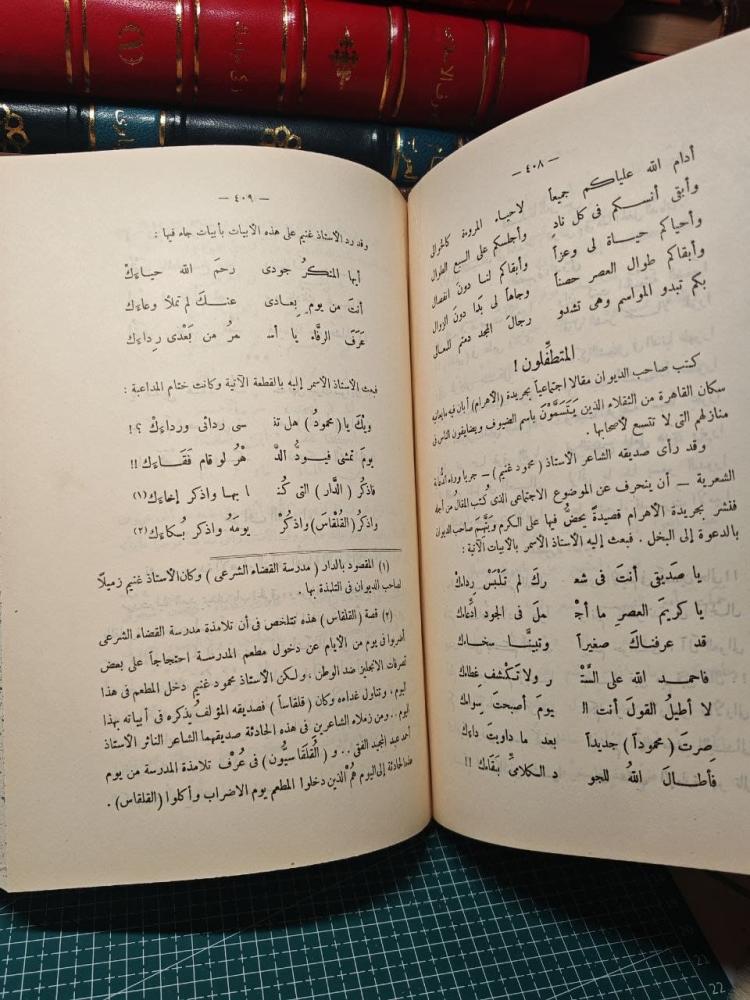 — ٤٠٨ —
أدام الله علياكم جميعاً لاحياء المروءة كالخوالى
وأبقى أنسكم فى كل نادٍ وأجلسكم على السبع الطوال
وأحياكم حياة لى وعزاً وأبقاكم لنا دون انفصال
وأبقاكم طوال العصر حصناً وجاهاً لى بَدا دونَ الزوال
بكم تبدو المواسم وهى تشدو رجالَ المجد دمتم للمعالى
المتطفِّلون !
كتب صاحب الديوان مقالا اجتماعياً بجريدة (الأهرام) أبان فيه ما يعانيه
سكان القاهرة من الثقلاء الذين يَتَسَمَّوْنَ باسم الضيوف ويضايقون الناس فى
منازلهم التى لا تتسع لأصحابها .
وقد رأى صديقه الشاعر الأستاذ (محمود غنيم) — جريا وراء الدُّعابة
الشعرية — أن ينحرف عن الموضوع الاجتماعى الذى كُتب المقالُ من أجله
فنشر بجريدة الأهرام قصيدةً يحضُّ فيها على الكرم وَيَتَّهِمُ صاحب الديوان
بالدعوة إلى البخل . فبعث إليه الأستاذ الأسمر بالأبيات الآتية :
يا صَديقى أنتَ فى شعـ ـرك لم تَلْبَسْ رِدائك
يا كريمَ العصرِ ما أجْـ ـملَ فى الجود ادِّعائك
قد عرفناكَ صغيراً وتبينَّـا سخـاءك
فاحمـد الله على السَّتْـ ـرِ ولا تَكْشف غطاءك
لا أطيلُ القولَ أنت الـ ـيومَ أصبحتَ سِواءك
صِرتَ (محموداً) جديداً بعد ما داويتَ داءك
فأطـالَ اللهُ للجو دِ الـكلامىِّ بَقَاءك !!
— ٤٠٩ —
وقد رد الأستاذ غنيم على هذه الأبيات بأبيات جاء فيها :
أيها المنكرُ جودى رحمَ الله حياءَكْ
أنتَ من يوم بِعادى عنـكَ لم تملأ وعاءَك
عَرَفَ الرفَّاءُ يا أسـ ـمرُ من بَعْدى رِداءك
فبعث الأستاذ الأسمر إليه بالقطعة الآتية وكانت ختام المداعبة :
ويكَ يا (محمودُ) هل تنـ ـسى ردائى ورداءَك ؟!
يومَ تمشى فيـودُّ الدَّ هْرُ لو قام فَقَـاءَك !!
فاذكرُ (الدَّار) التى كُنـَّ ـا بها واذكر إخاءَك(١)
واذكر (القُلْقَاس) واذكُرْ يومَهُ واذكر بُـكاءَك(٢)
(١) المقصود بالدار (مدرسة القضاء الشرعى) وكان الأستاذ غنيم زميلاً
لصاحب الديوان فى التلمذة بها .
(٢) قصة (القلقاس) هذه تتلخص فى أن تلامذة مدرسة القضاء الشرعى
أضربوا فى يوم من الأيام عن دخول مطعم المدرسـة احتجاجاً على بعض
تصرفات الانجليز ضد الوطن ، ولكن الأستاذ محمود غنيم دخل المطعم فى هذا
اليوم ، وتناول غداءه وكان (قلقاساً) فصديقه المؤلف يُذكره فى أبياته بهذا
اليوم . . ومن زملاء الشاعرين فى هذه الحادثة صديقهما الشاعر الناثر الأستاذ
أحمد عبد المجيد الغزالى . . و (القُلْقاسيُّون) فى عُرْف تلامذة المدرسة من يوم
هذه الحادثة إلى اليوم هُمْ الذين دخلوا المطعم يوم الاضراب وأكلوا (القلقاس) .